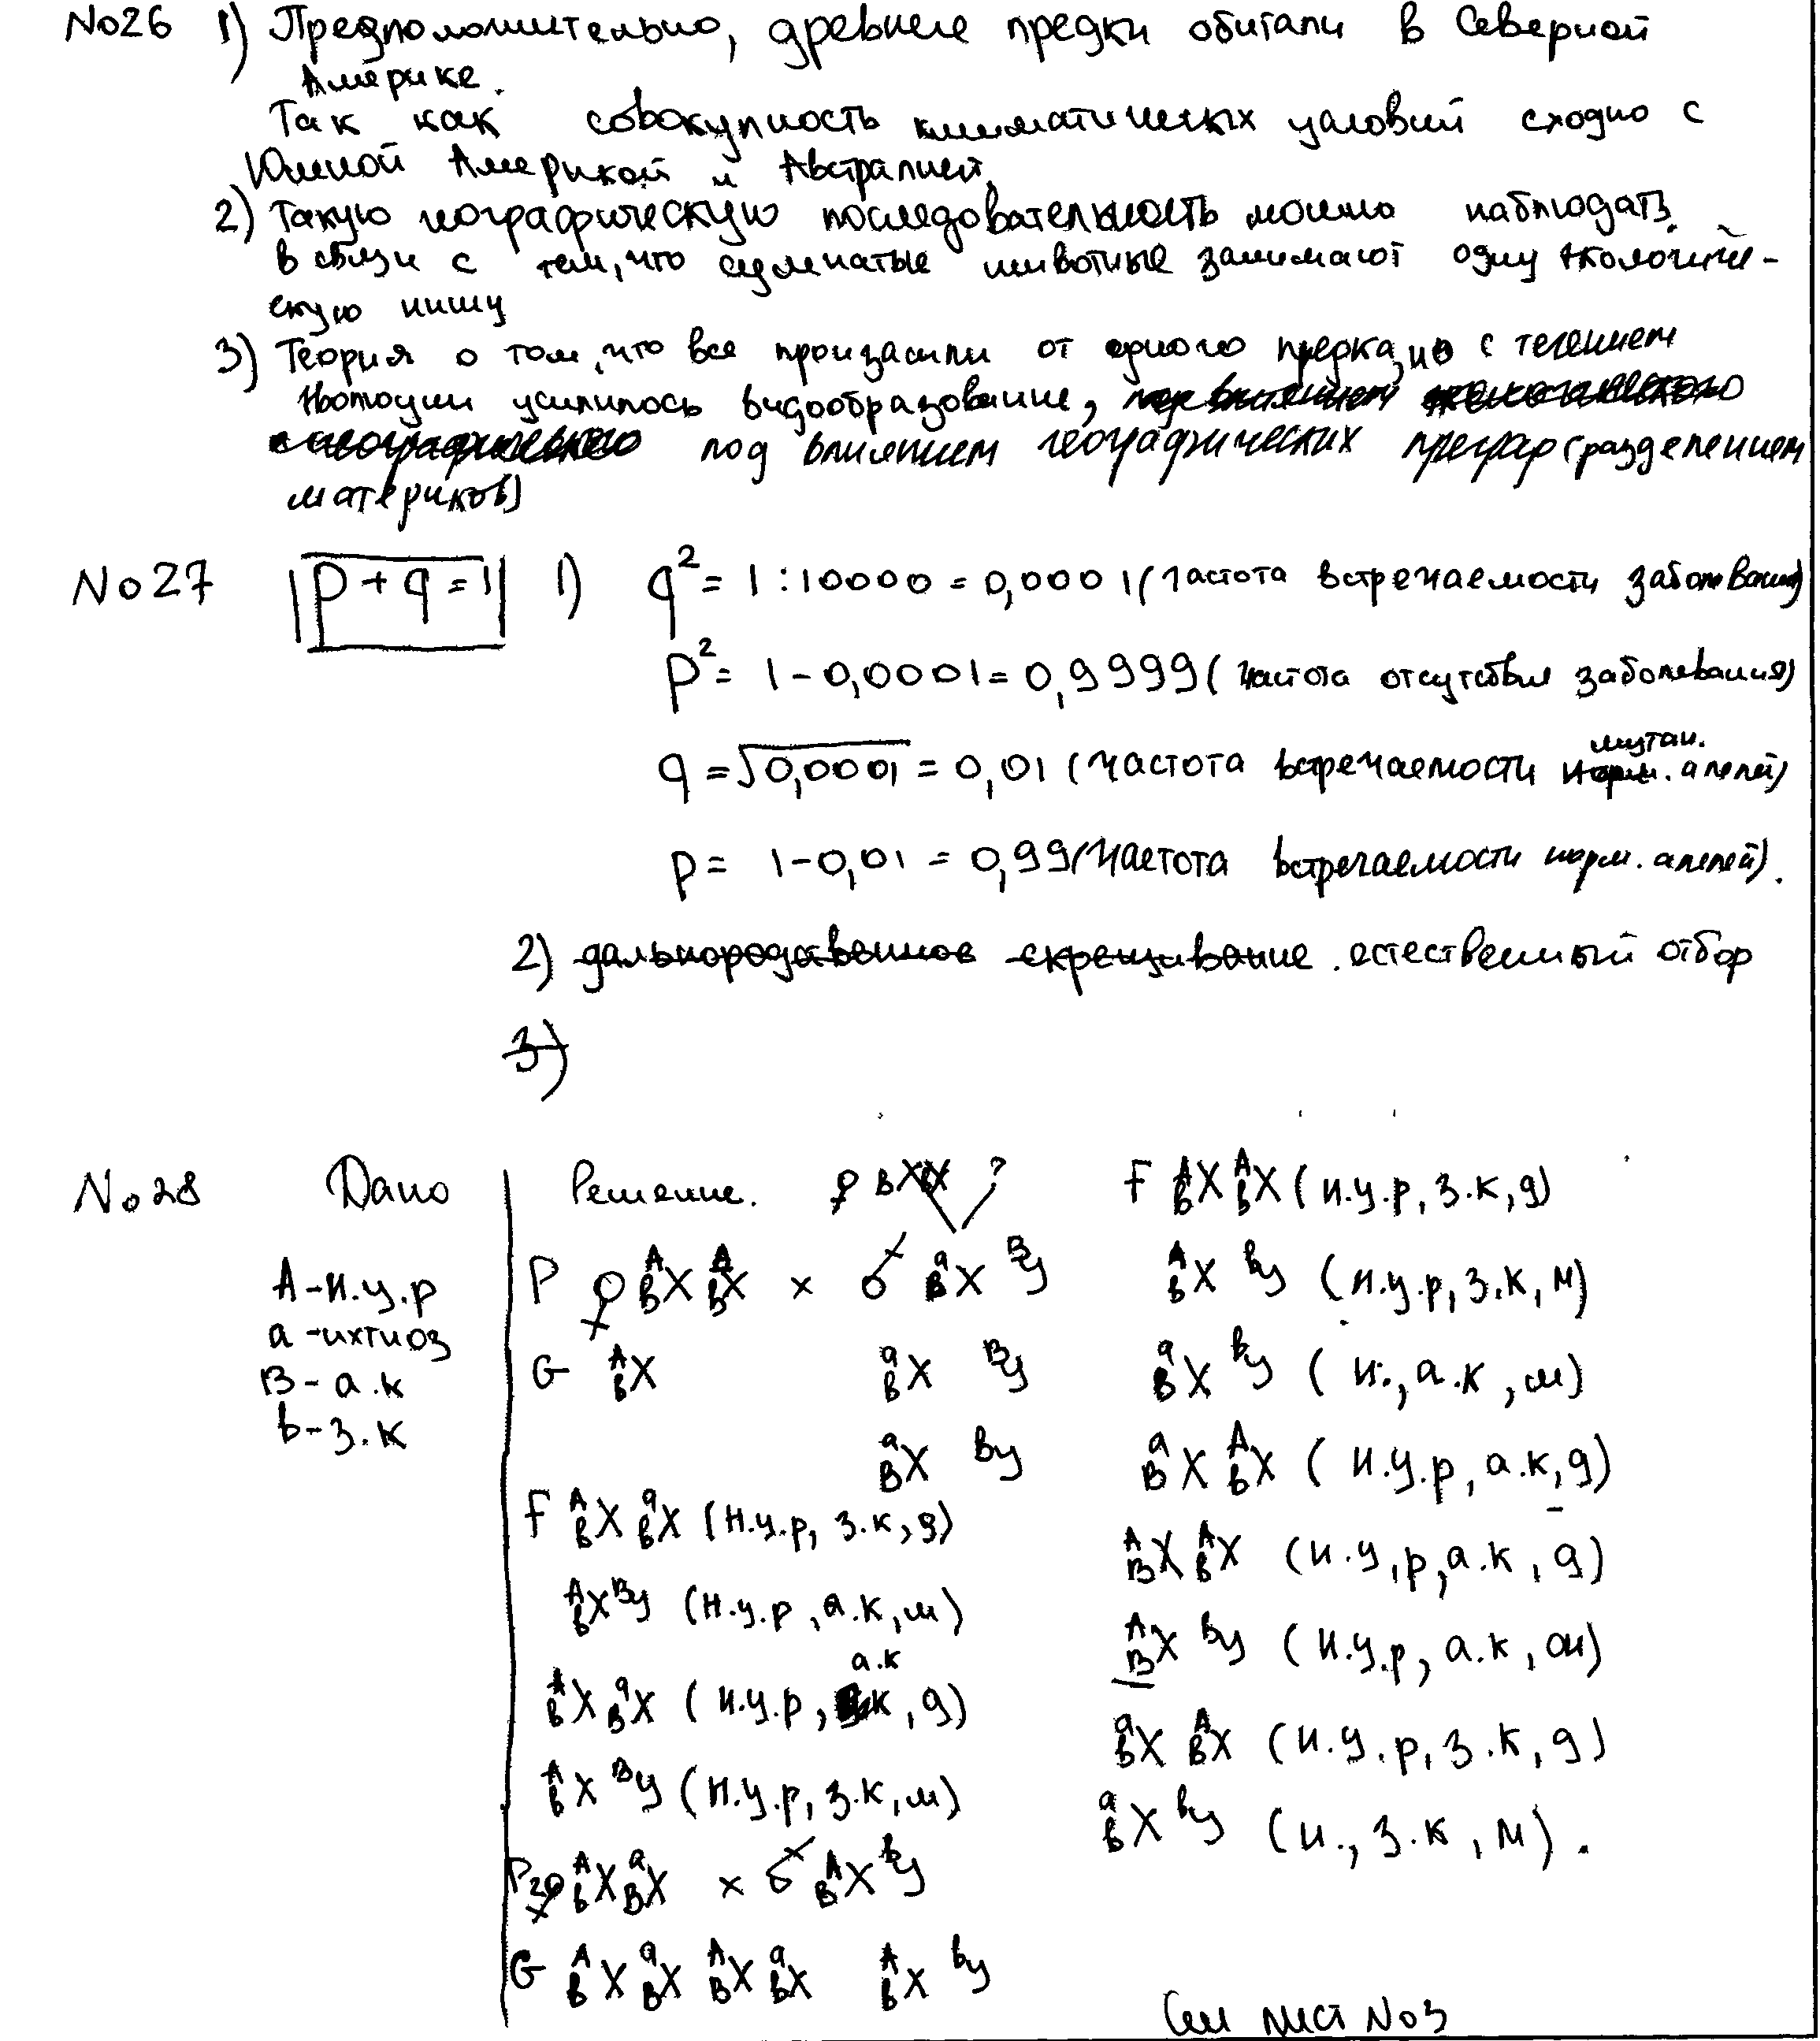 No26 1) Предположительно, древние предки обитали в Северной
Америке.
Так как совокупность климатических условий сходно с
Южной Америкой и Австралией.
2) Такую географическую последовательность можно наблюдать
в связи с тем, что сумчатые животные занимают одну экологиче-
скую нишу
3) Теория о том, что все произошли от одного предка, но с течением
усилилось видообразование,
под влиянием географических преград (разделением
материков)
No27 p + q = 1 1) q² = 1 : 10000 = 0,0001 (частота встречаемости заболевания)
p² = 1 - 0,0001 = 0,9999 (частота отсутствия заболевания)
q = √0,0001 = 0,01 (частота встречаемости мутан. алелей)
p = 1 - 0,01 = 0,99 (частота встречаемости норм. алелей).
2) дальнородственное скрещивание. естественный отбор
3)
No28 Дано
А - н.у.р
а - ихтиоз
В - а.к
b - з.к
Решение. ♀ ?
P ♀ ᴬbX ᴬbX × ♂ ᵃbX ᴮy
G ᴬbX ᵃbX ᴮy
ᵃBX ᵇy
F ᴬbX ᵃbX (н.у.р, з.к, д)
ᴬbX ᴮy (н.у.р, а.к, м)
ᴬbX ᵃBX (н.у.р, а.к, д)
ᴬbX ᴮy (н.у.р, з.к, м)
P₂ ♀ ᴬbX ᵃBX × ♂ ᴬbX ᵇy
G ᴬbX ᵃBX ᴬBX ᵃbX ᴬbX ᵇy
F ᴬbX ᴬbX (н.у.р, з.к, д)
ᴬbX ᵇy (н.у.р, з.к, м)
ᵃBX ᵇy (и., а.к, м)
ᵃBX ᴬbX (н.у.р, а.к, д)
ᴬBX ᴬbX (н.у,р, а.к, д)
ᴬBX ᵇy (н.у.р, а.к, м)
ᵃbX ᴬbX (н.у.р, з.к, д)
ᵃbX ᵇy (и., з.к, м).
См лист No3